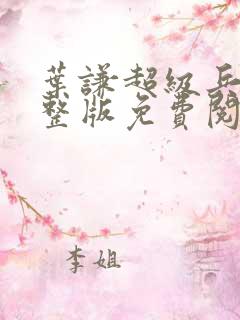 葉謙超級兵
整版免費閱
李姐